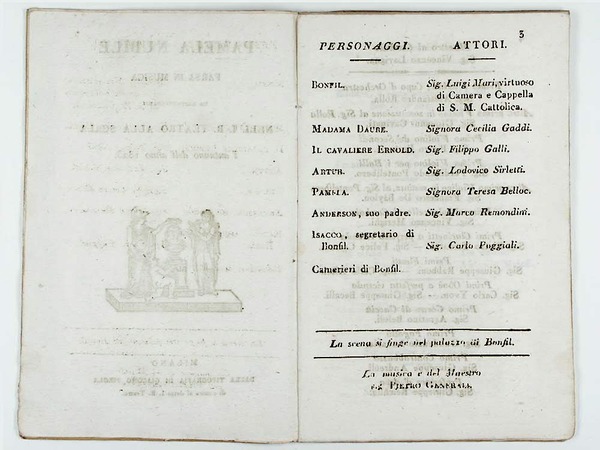 3
PERSONAGGI. ATTORI.
Bonfil. Sig. Luigi Mari, virtuoso
di Camera e Cappella
di S. M. Cattolica.
Madama Daure. Signora Cecilia Gaddi.
Il cavaliere Ernold. Sig. Filippo Galli.
Artur. Sig. Lodovico Sirletti.
Pamela. Signora Teresa Belloc.
Anderson, suo padre. Sig. Marco Remondini.
Isacco, segretario di
Bonfil. Sig. Carlo Poggiali.
Camerieri di Bonfil.
La scena si finge nel palazzo di Bonfil.
La musica è del Maestro
sig. Pietro Generali.